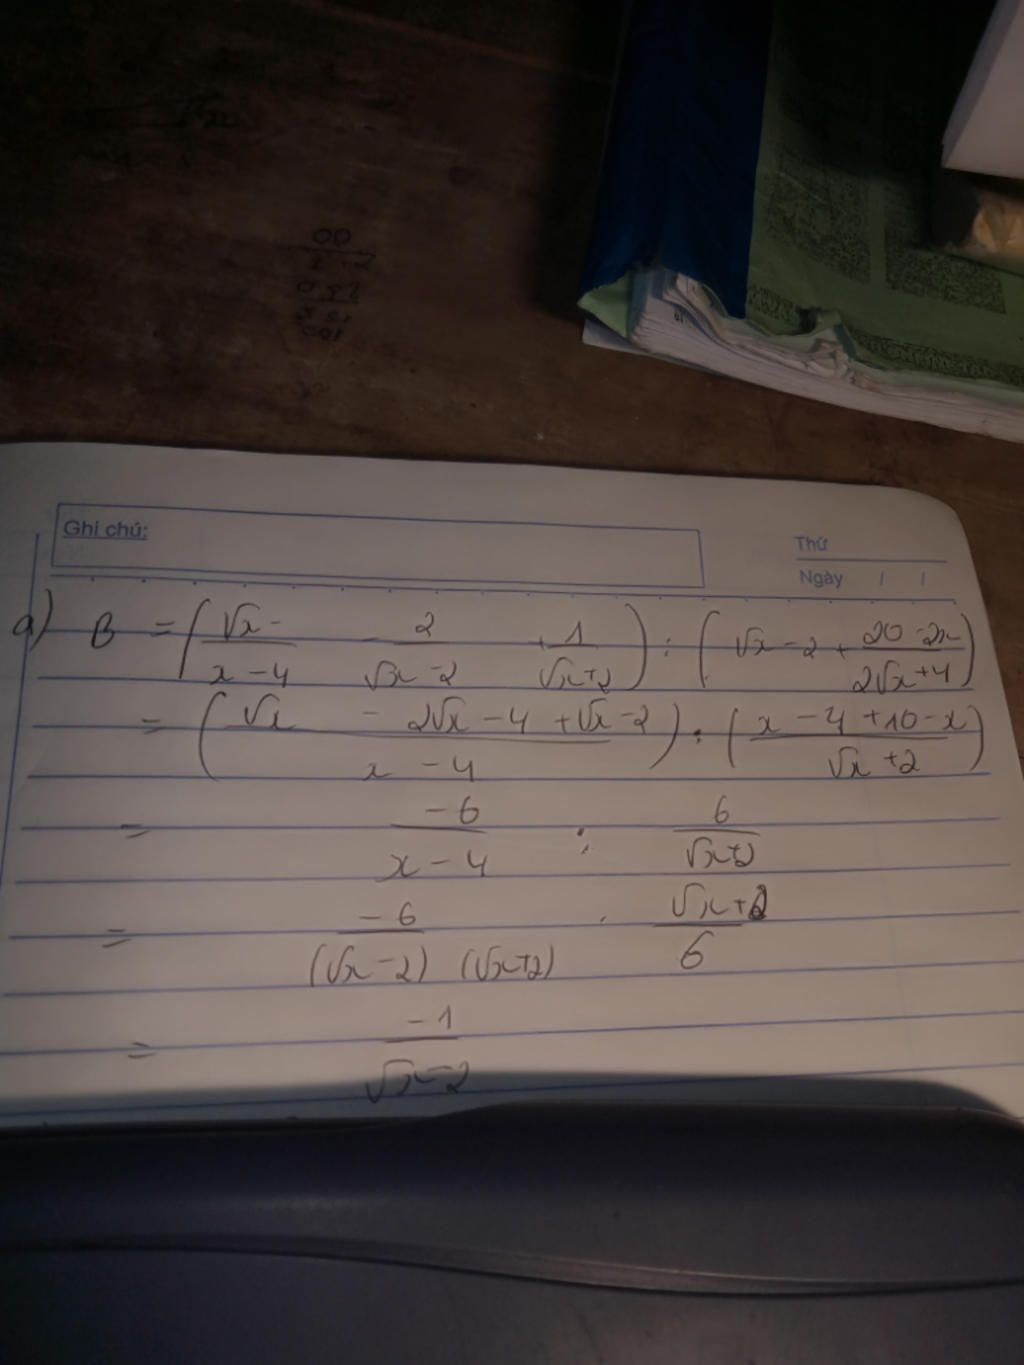 Ghi chú:
Thứ
Ngày / /
a) B = (√x / x - 4 - 2 / √x - 2 + 1 / √x + 2) : (√x - 2 + 20 - 2x / 2√x + 4)
= (√x - 2√x - 4 + √x - 2 / x - 4) : (x - 4 + 10 - x / √x + 2)
= -6 / x - 4 : 6 / √x + 2
= -6 / (√x - 2) (√x + 2) . √x + 2 / 6
= -1 / √x - 2